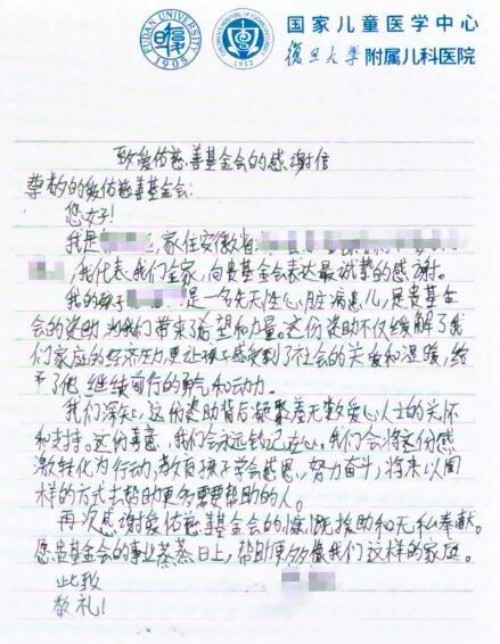 FUDAN UNIVERSITY
1905
1952
国家儿童医学中心
復旦大學 附属儿科医院
致爱佑慈善基金会的感谢信
尊敬的爱佑慈善基金会:
您好!
我是 ,家住安徽省
,我代表我们全家,向贵基金会表达最诚挚的感谢。
我的孩子 是一名先天性心脏病患儿,是贵基金
会的资助为我们带来了希望和力量。这份资助不仅缓解了我
们家庭的经济压力,更让孩子感受到了社会的关爱和温暖,给
予了他继续前行的勇气和动力。
我们深知,这份资助背后凝聚着无数爱心人士的关怀
和支持。这份善意,我们会永远铭记在心。我们会将这份感
激转化为行动,教育孩子学会感恩,努力奋斗,将来以同
样的方式去帮助更多需要帮助的人。
再次感谢爱佑慈善基金会的慷慨援助和无私奉献。
愿贵基金会的事业蒸蒸日上,帮助更多像我们这样的家庭。
此致
敬礼!